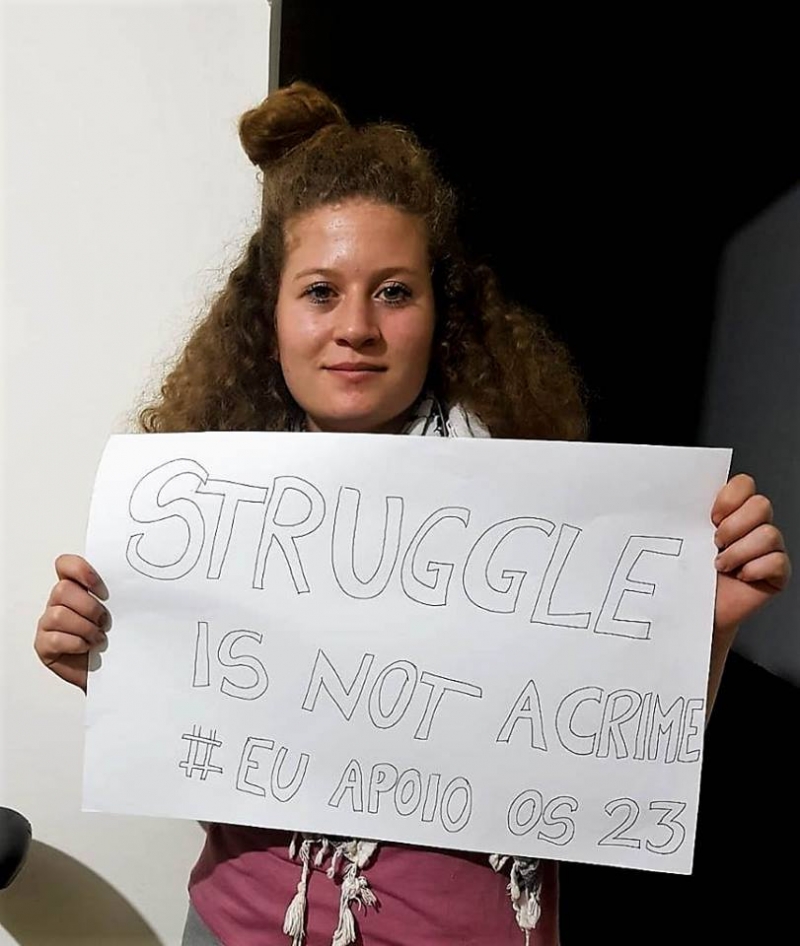 STRUGGLE
IS NOT A CRIME
# EU APOIO OS 23